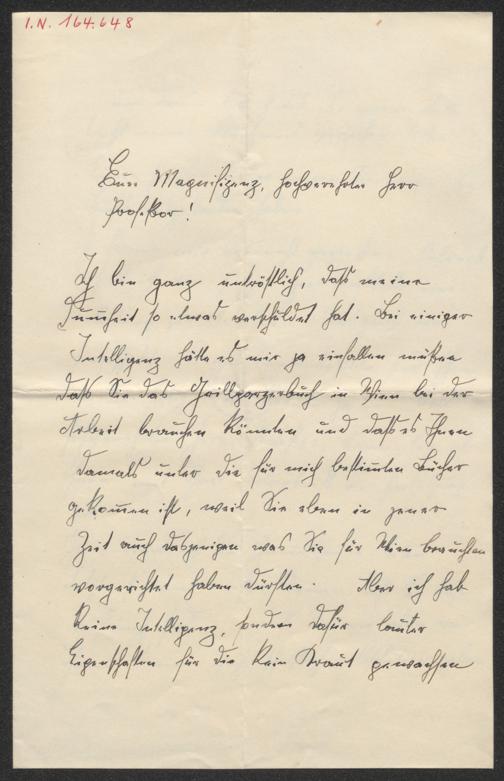 I.N. 164.648
Eure Magnifizenz, hochverehrter Herr
Professor!
Ich bin ganz untröstlich, daß meine
Dummheit so etwas verschuldet hat. Bei einiger
Intelligenz hätte es mir ja einfallen müssen
daß Sie das Grillparzerbuch in Wien bei der
Arbeit brauchen könnten und daß es Ihnen
damals unter die für mich bestimmten Bücher
gekommen ist, weil Sie eben in jener
Zeit auch dasjenigen was Sie für Wien brauchten
vorgerichtet haben dürften. Aber ich hab
keine Intelligenz, sondern dafür lauter
Eigenschaften für die kein Kraut gewachsen